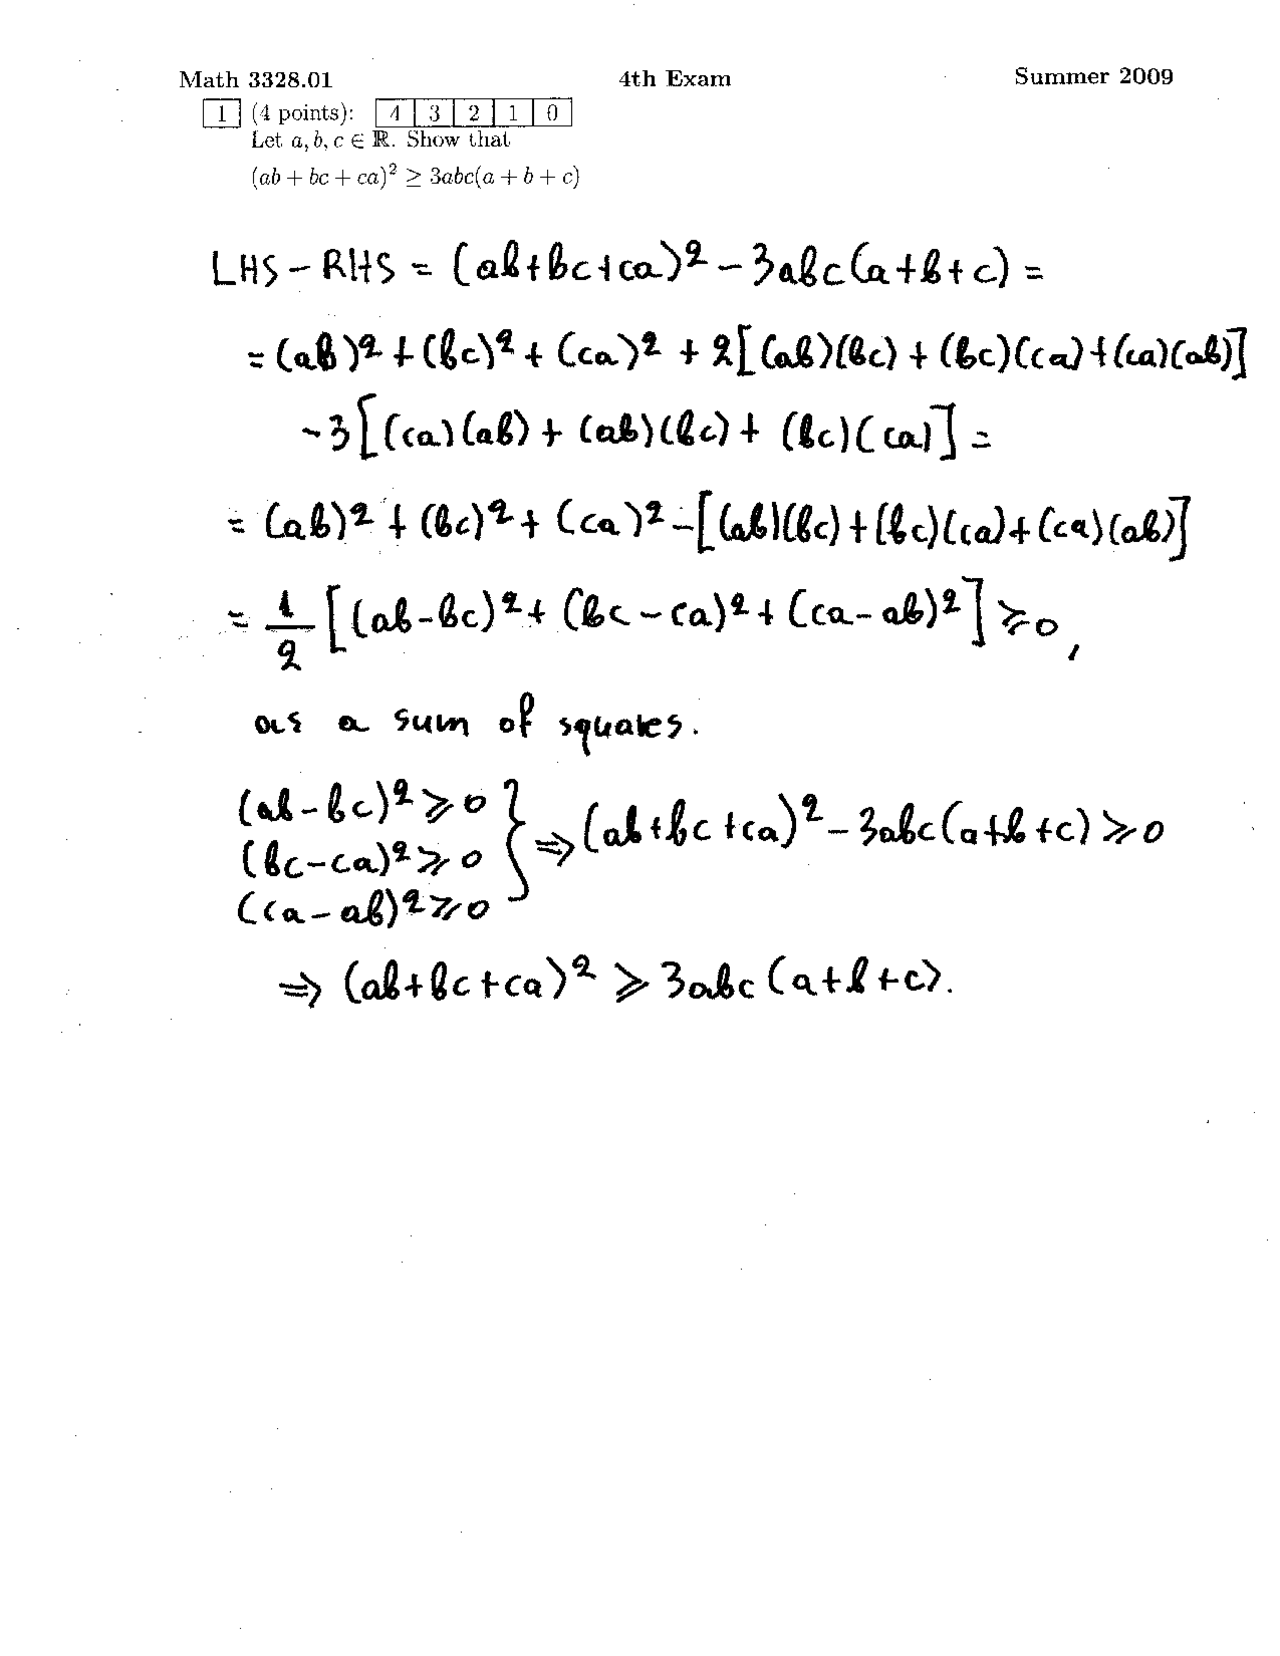 Math 3328.01 4th Exam Summer 2009
1 (4 points): 4 3 2 1 0
Let a, b, c ∈ ℝ. Show that
(ab + bc + ca)² ≥ 3abc(a + b + c)
LHS – RHS = (ab+bc+ca)² – 3abc(a+b+c) =
= (ab)² + (bc)² + (ca)² + 2[(ab)(bc) + (bc)(ca) + (ca)(ab)]
–3[(ca)(ab) + (ab)(bc) + (bc)(ca)] =
= (ab)² + (bc)² + (ca)² – [(ab)(bc) + (bc)(ca) + (ca)(ab)]
= 1/2 [(ab–bc)² + (bc–ca)² + (ca–ab)²] ≥ 0,
as a sum of squares.
(ab–bc)² ≥ 0
(bc–ca)² ≥ 0 } ⇒ (ab+bc+ca)² – 3abc(a+b+c) ≥ 0
(ca–ab)² ≥ 0
⇒ (ab+bc+ca)² ≥ 3abc(a+b+c).